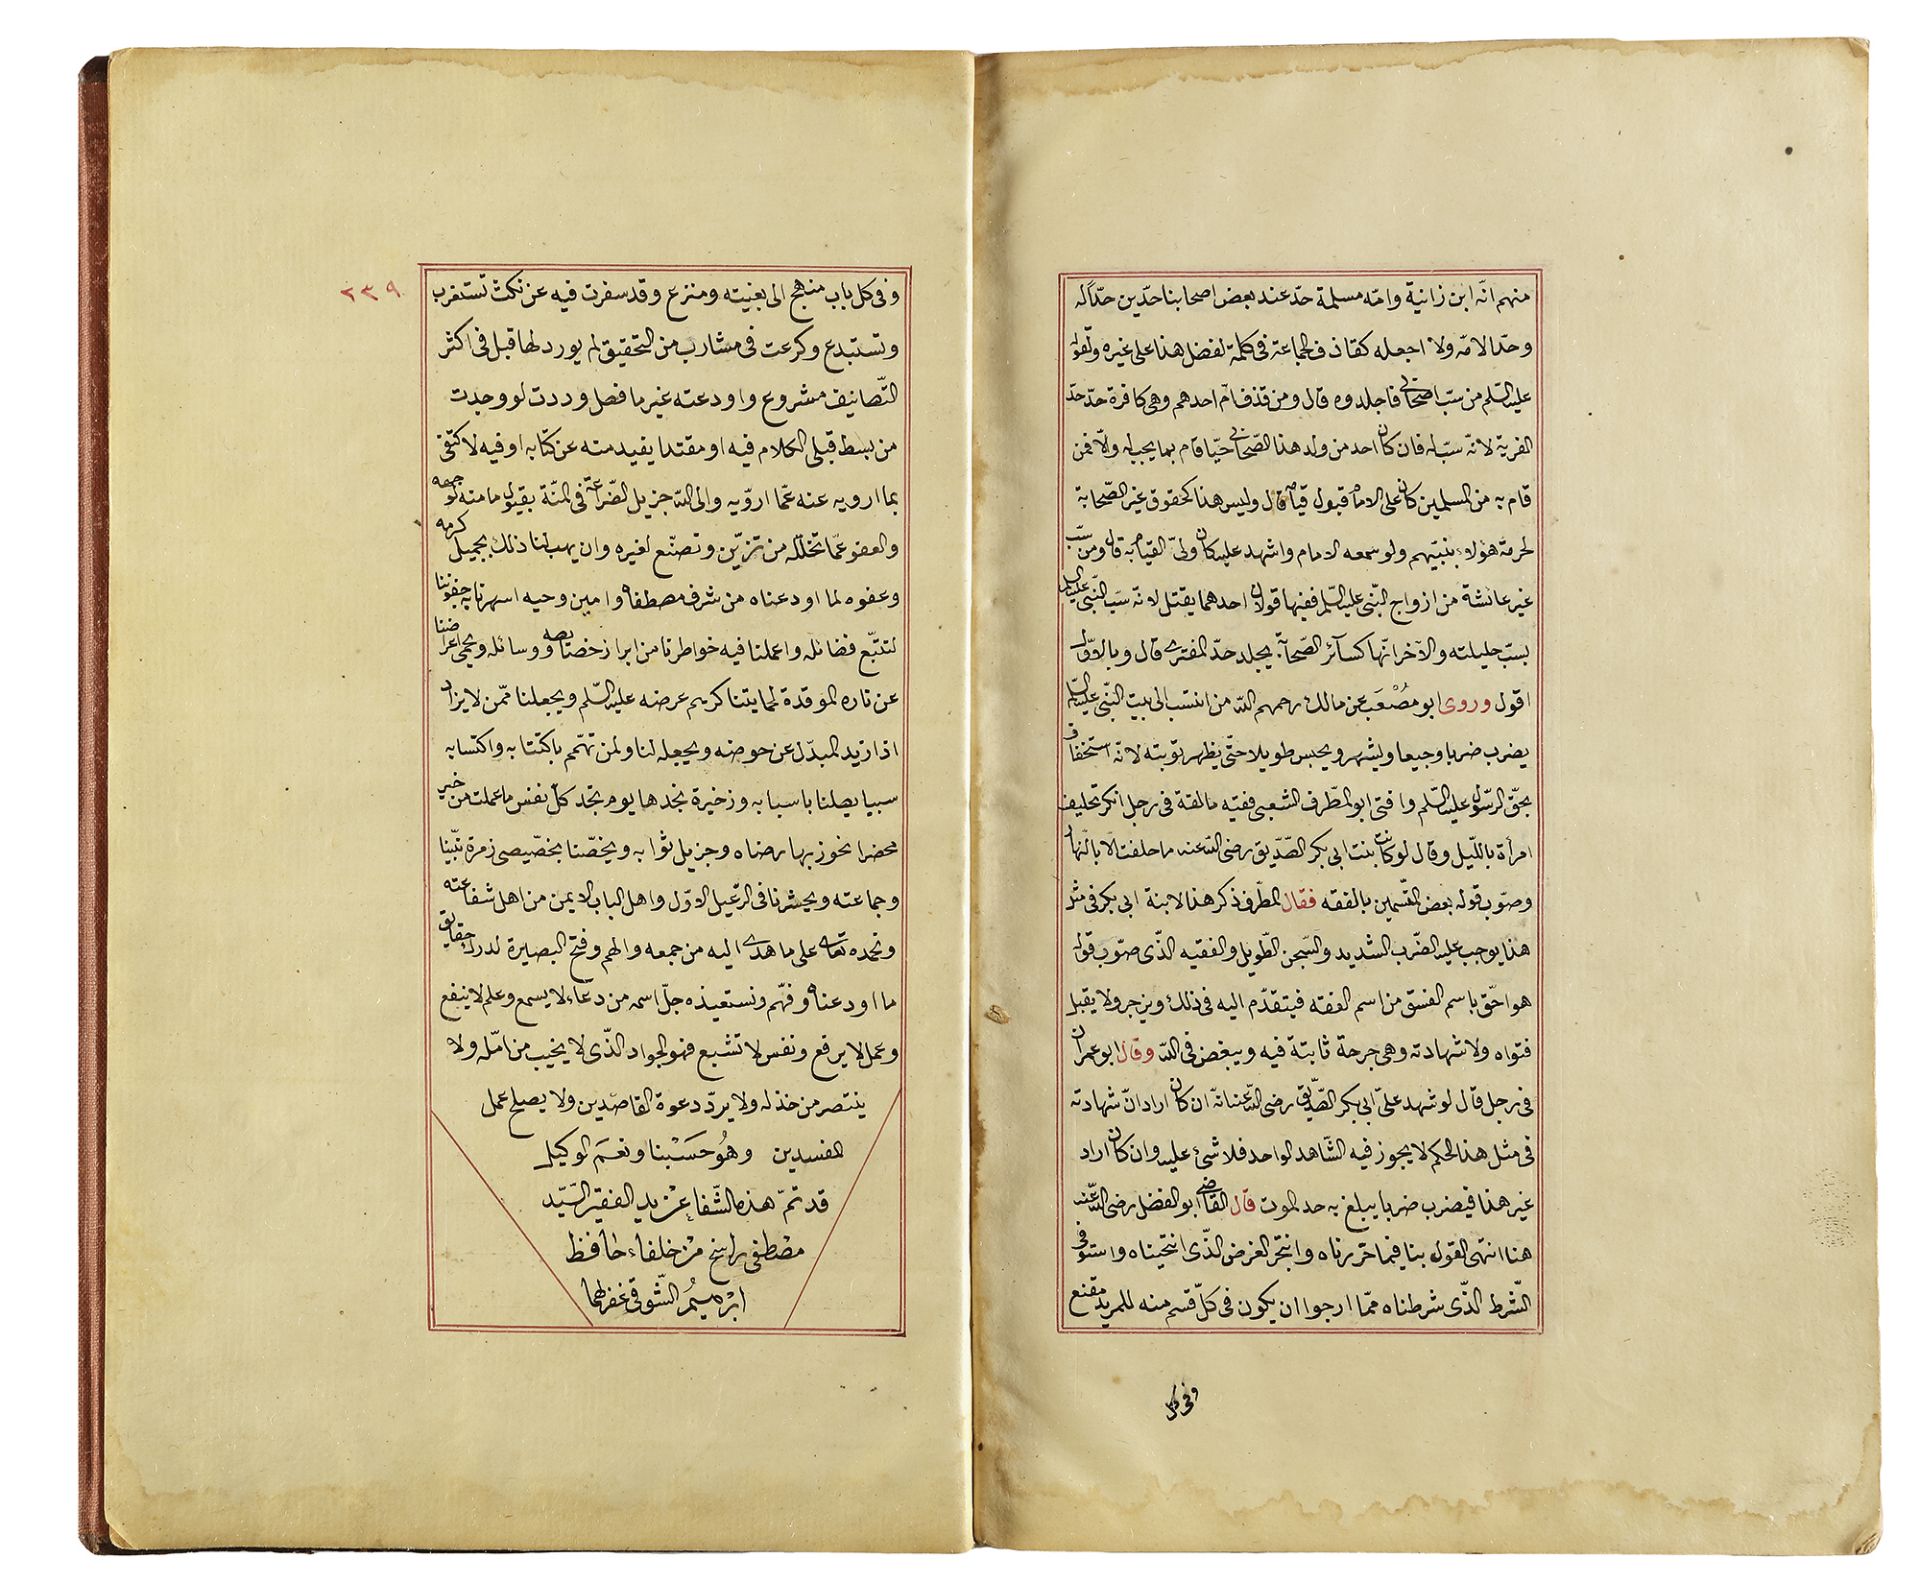 منهم انّه ابن زانية وامّه مسلمة حدّ عند بعض اصحابنا حدّين حدّا له
وحدّا لامّه ولا اجعله كقاذف الجماعة فى كلمة لفضل هذا على غيره ولقوله
عليه السّلم من سبّ اصحابى فاجلدوه قال ومن قذف امّ احدهم وهى كافرة حدّ حدّ
الفرية لانّه سبّ له فان كان احد من ولد هذا الصّحابى حيّا قام بما يجب له والّا فمن
قام به من المسلمين كان على الامام قبول قيامه قال وليس هذا كحقوق غير الصّحابة
لحرمة هؤلاء بنبيّهم ولو سمعه الامام واشهد عليه كان ولىّ القيام به قال ومن سبّ
غير عائشة من ازواج النّبى عليه السّلم ففيها قولان احدهما يقتل لانّه سبّ النّبى عليه السلم
بسبّ حليلته والآخر انّها كسائر الصّحابة يجلد حدّ المفترى قال وبالاوّل
اقول وروى ابو مصْعَب عن مالك رحمهم الله من انتسب الى بيت النّبى عليه السّلم
يضرب ضربا وجيعا ويشهر ويحبس طويلا حتّى يظهر توبته لانّه استخفاف
بحقّ الرّسول عليه السّلم وافتى ابو المطّرف الشعبى فقيه مالقة فى رجل انكر تحليف
امرأة باللّيل وقال لو كانت بنت ابى بكر الصّدّيق رضى الله عنه ما حلفت الا بالنّهار
وصوّب قوله بعض المتّسمين بالفقه فقال المطّرف ذكر هذا لابنة ابى بكر فى مثل
هذا يوجب عليه الضّرب الشديد والسّجن الطّويل والفقيه الّذى صوّب قوله
هو احقّ باسم الفسق من اسم الفقه فيتقدّم اليه فى ذلك ويزجر ولا يقبل
فتواه ولا شهادته وهى جرحة ثابتة فيه ويبغض فى الله وقال ابو عمران
فى رجل قال لو شهد علىّ ابى بكر الصّدّيق رضى الله عنه انّه ان كان اراد انّ شهادته
فى مثل هذا الحكم لا يجوز فيه الشّاهد الواحد فلا شئ عليه وان كان اراد
غير هذا فيضرب ضربا يبلغ به حد الموت قال القاضى ابو الفضل رضى الله عنه
هنا انتهى القول بنا فيما حرّرناه وانتجز الغرض الّذى انتحيناه واستوفى
الشّرط الّذى شرطناه ممّا ارجوا ان يكون فى كلّ قسم منه للمريد مقنع
وفى كل
٢٣٩
وفى كل باب منهج الى بغيته ومنزع وقد سفرت فيه عن نكت تستغرب
وتستبدع وكرعت فى مشارب من التحقيق لم يورد لها قبل فى اكثر
التّصانيف مشروع واودعته غير ما فصل وددت لو وجدت
من بسط قبلى الكلام فيه او مقتدا يفيدمنه عن كتابه او فيه لاكتفى
بما ارويه عنه عمّا اروّيه والى الله جزيل الضّراعة فى المنّة بقبول ما منه لوجهه
والعفو عمّا تخلّله من تزيّن وتصنّع لغيره وان يهب لنا ذلك بجميل كرمه
وعفوه لما اودعناه من شرف مصطفاه وامين وحيه اسهرنا به جفوننا
لتتبّع فضائله واعملنا فيه خواطرنا من ابراز خصائصه ووسائله ويحمى اعراضنا
عن ناره الموقدة لحمايتنا كريم عرضه عليه السّلم ويجعلنا ممّن لا يزاد
اذا زيد المبدّل عن حوضه ويجعله لنا ولمن تهمّم باكتتابه واكتسابه
سببا يصلنا باسبابه وذخيرة نجدها يوم تجد كلّ نفس ما عملت من خير
محضرا نحوز بها رضاه وجزيل ثوابه ويخصّنا بخصّيصى زمرة نبيّنا
وجماعته ويحشرنا فى الرّعيل الاوّل واهل الباب الايمن من اهل شفاعته
ونحمده تعالى على ما هدى اليه من جمعه والهم وفتح البصيرة لدرك حقايق
ما اودعناه وفهّم ونستعيذه جلّ اسمه من دعاء لا يسمع وعلم لا ينفع
وعمل لا يرفع ونفس لا تشبع فهو الجواد الّذى لا يخيب من امّله ولا
ينتصر من خذله ولا يردّ دعوة القاصدين ولا يصلح عمل
المفسدين وهُو حَسَبْنا ونعمَ الوكيل
قد تمّ هذه الشّفاء عن يد الفقير السّيّد
مصْطفى راسخ منْ خلفاء حافظ
ابْرٰهيمُ الشّوقى غفر لهما